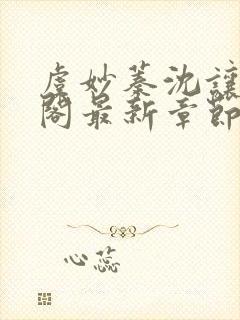 虞妙蓁沈讓
閣最新章節
心蕊